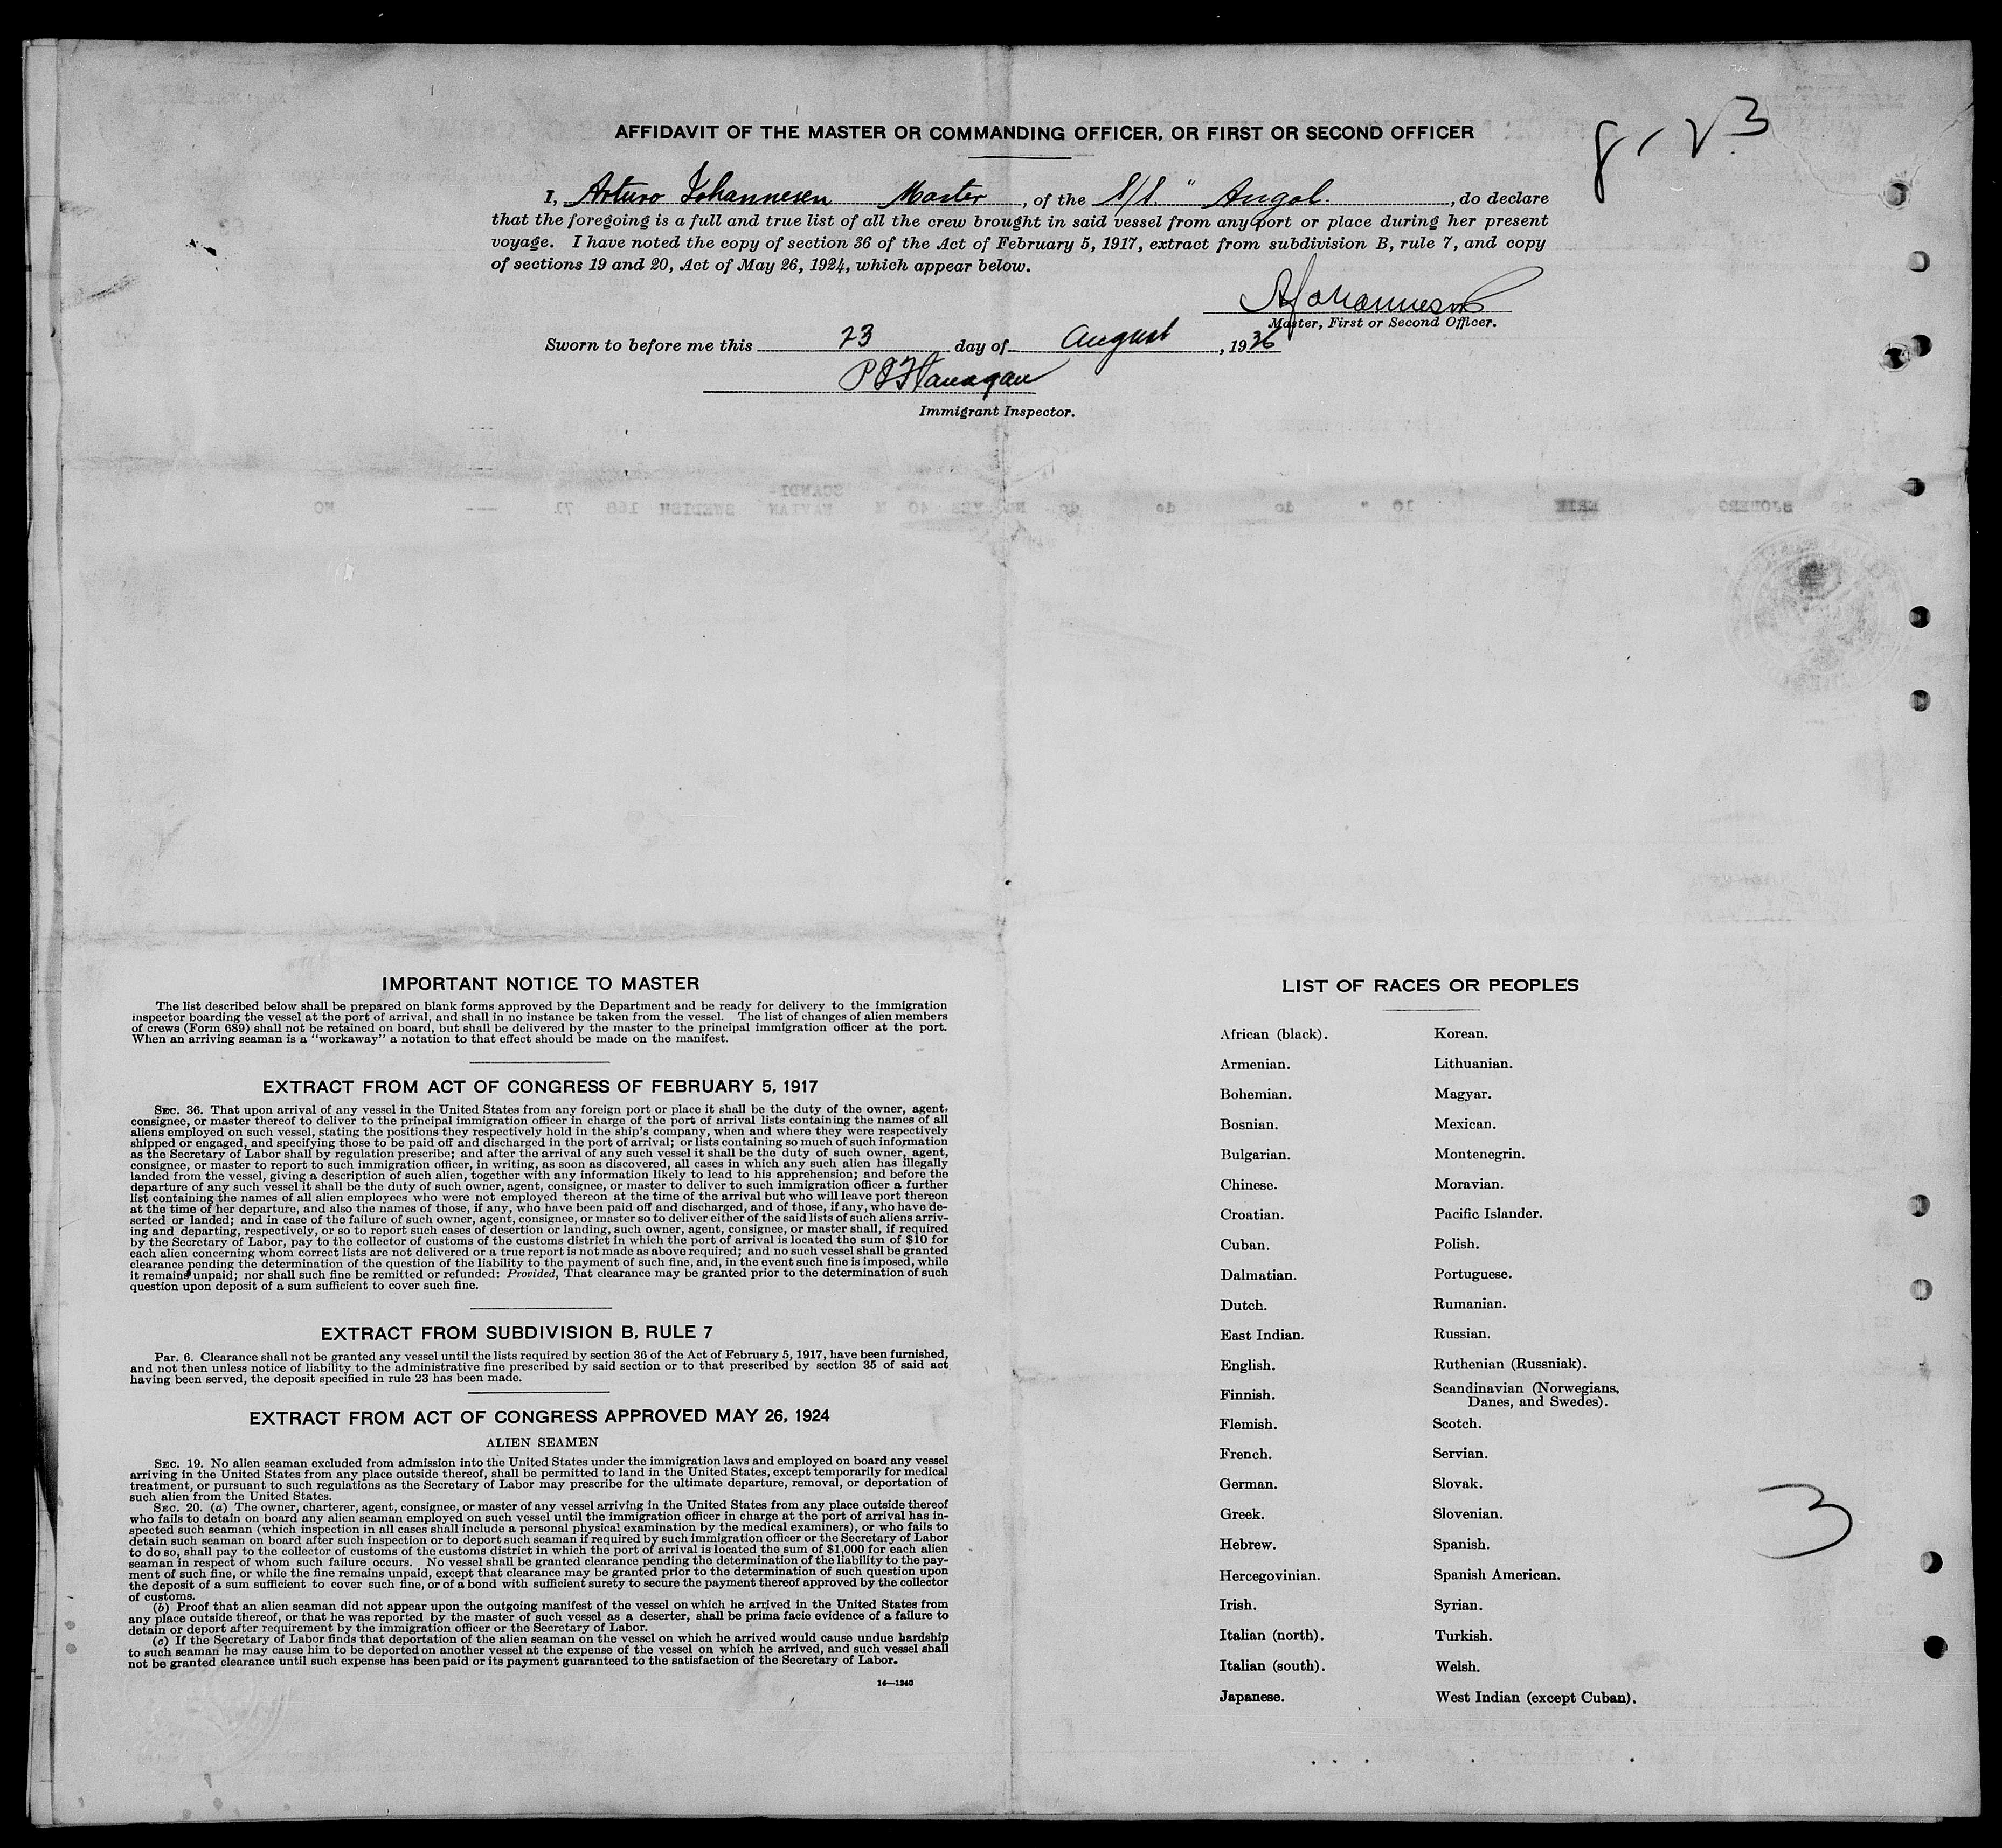 AFFIDAVIT OF THE MASTER OR COMMANDING OFFICER, OR FIRST OR SECOND OFFICER
8-23
I, Arturo Johannesen Master, of the S/S. " Angol., do declare
that the foregoing is a full and true list of all the crew brought in said vessel from any port or place during her present
voyage. I have noted the copy of section 36 of the Act of February 5, 1917, extract from subdivision B, rule 7, and copy
of sections 19 and 20, Act of May 26, 1924, which appear below.
AJohannesen
Master, First or Second Officer.
Sworn to before me this 23 day of August, 1936
Flanagan
Immigrant Inspector.
IMPORTANT NOTICE TO MASTER
The list described below shall be prepared on blank forms approved by the Department and be ready for delivery to the immigration
inspector boarding the vessel at the port of arrival, and shall in no instance be taken from the vessel. The list of changes of alien members
of crews (Form 689) shall not be retained on board, but shall be delivered by the master to the principal immigration officer at the port.
When an arriving seaman is a "workaway" a notation to that effect should be made on the manifest.
EXTRACT FROM ACT OF CONGRESS OF FEBRUARY 5, 1917
SEC. 36. That upon arrival of any vessel in the United States from any foreign port or place it shall be the duty of the owner, agent,
consignee, or master thereof to deliver to the principal immigration officer in charge of the port of arrival lists containing the names of all
aliens employed on such vessel, stating the positions they respectively hold in the ship's company, when and where they were respectively
shipped or engaged, and specifying those to be paid off and discharged in the port of arrival; or lists containing so much of such information
as the Secretary of Labor shall by regulation prescribe; and after the arrival of any such vessel it shall be the duty of such owner, agent,
consignee, or master to report to such immigration officer, in writing, as soon as discovered, all cases in which any such alien has illegally
landed from the vessel, giving a description of such alien, together with any information likely to lead to his apprehension; and before the
departure of any such vessel it shall be the duty of such owner, agent, consignee, or master to deliver to such immigration officer a further
list containing the names of all alien employees who were not employed thereon at the time of the arrival but who will leave port thereon
at the time of her departure, and also the names of those, if any, who have been paid off and discharged, and of those, if any, who have de-
serted or landed; and in case of the failure of such owner, agent, consignee, or master so to deliver either of the said lists of such aliens arriv-
ing and departing, respectively, or so to report such cases of desertion or landing, such owner, agent, consignee, or master shall, if required
by the Secretary of Labor, pay to the collector of customs of the customs district in which the port of arrival is located the sum of $10 for
each alien concerning whom correct lists are not delivered or a true report is not made as above required; and no such vessel shall be granted
clearance pending the determination of the question of the liability to the payment of such fine, and, in the event such fine is imposed, while
it remains unpaid; nor shall such fine be remitted or refunded: Provided, That clearance may be granted prior to the determination of such
question upon deposit of a sum sufficient to cover such fine.
EXTRACT FROM SUBDIVISION B, RULE 7
Par. 6. Clearance shall not be granted any vessel until the lists required by section 36 of the Act of February 5, 1917, have been furnished,
and not then unless notice of liability to the administrative fine prescribed by said section or to that prescribed by section 35 of said act
having been served, the deposit specified in rule 23 has been made.
EXTRACT FROM ACT OF CONGRESS APPROVED MAY 26, 1924
ALIEN SEAMEN
SEC. 19. No alien seaman excluded from admission into the United States under the immigration laws and employed on board any vessel
arriving in the United States from any place outside thereof, shall be permitted to land in the United States, except temporarily for medical
treatment, or pursuant to such regulations as the Secretary of Labor may prescribe for the ultimate departure, removal, or deportation of
such alien from the United States.
SEC. 20. (a) The owner, charterer, agent, consignee, or master of any vessel arriving in the United States from any place outside thereof
who fails to detain on board any alien seaman employed on such vessel until the immigration officer in charge at the port of arrival has in-
spected such seaman (which inspection in all cases shall include a personal physical examination by the medical examiners), or who fails to
detain such seaman on board after such inspection or to deport such seaman if required by such immigration officer or the Secretary of Labor
to do so, shall pay to the collector of customs of the customs district in which the port of arrival is located the sum of $1,000 for each alien
seaman in respect of whom such failure occurs. No vessel shall be granted clearance pending the determination of the liability to the pay-
ment of such fine, or while the fine remains unpaid, except that clearance may be granted prior to the determination of such question upon
the deposit of a sum sufficient to cover such fine, or of a bond with sufficient surety to secure the payment thereof approved by the collector
of customs.
(b) Proof that an alien seaman did not appear upon the outgoing manifest of the vessel on which he arrived in the United States from
any place outside thereof, or that he was reported by the master of such vessel as a deserter, shall be prima facie evidence of a failure to
detain or deport after requirement by the immigration officer or the Secretary of Labor.
(c) If the Secretary of Labor finds that deportation of the alien seaman on the vessel on which he arrived would cause undue hardship
to such seaman he may cause him to be deported on another vessel at the expense of the vessel on which he arrived, and such vessel shall
not be granted clearance until such expense has been paid or its payment guaranteed to the satisfaction of the Secretary of Labor.
14—1240
LIST OF RACES OR PEOPLES
African (black).
Armenian.
Bohemian.
Bosnian.
Bulgarian.
Chinese.
Croatian.
Cuban.
Dalmatian.
Dutch.
East Indian.
English.
Finnish.
Flemish.
French.
German.
Greek.
Hebrew.
Hercegovinian.
Irish.
Italian (north).
Italian (south).
Japanese.
Korean.
Lithuanian.
Magyar.
Mexican.
Montenegrin.
Moravian.
Pacific Islander.
Polish.
Portuguese.
Rumanian.
Russian.
Ruthenian (Russniak).
Scandinavian (Norwegians,
Danes, and Swedes).
Scotch.
Servian.
Slovak.
Slovenian.
Spanish.
Spanish American.
Syrian.
Turkish.
Welsh.
West Indian (except Cuban).
3